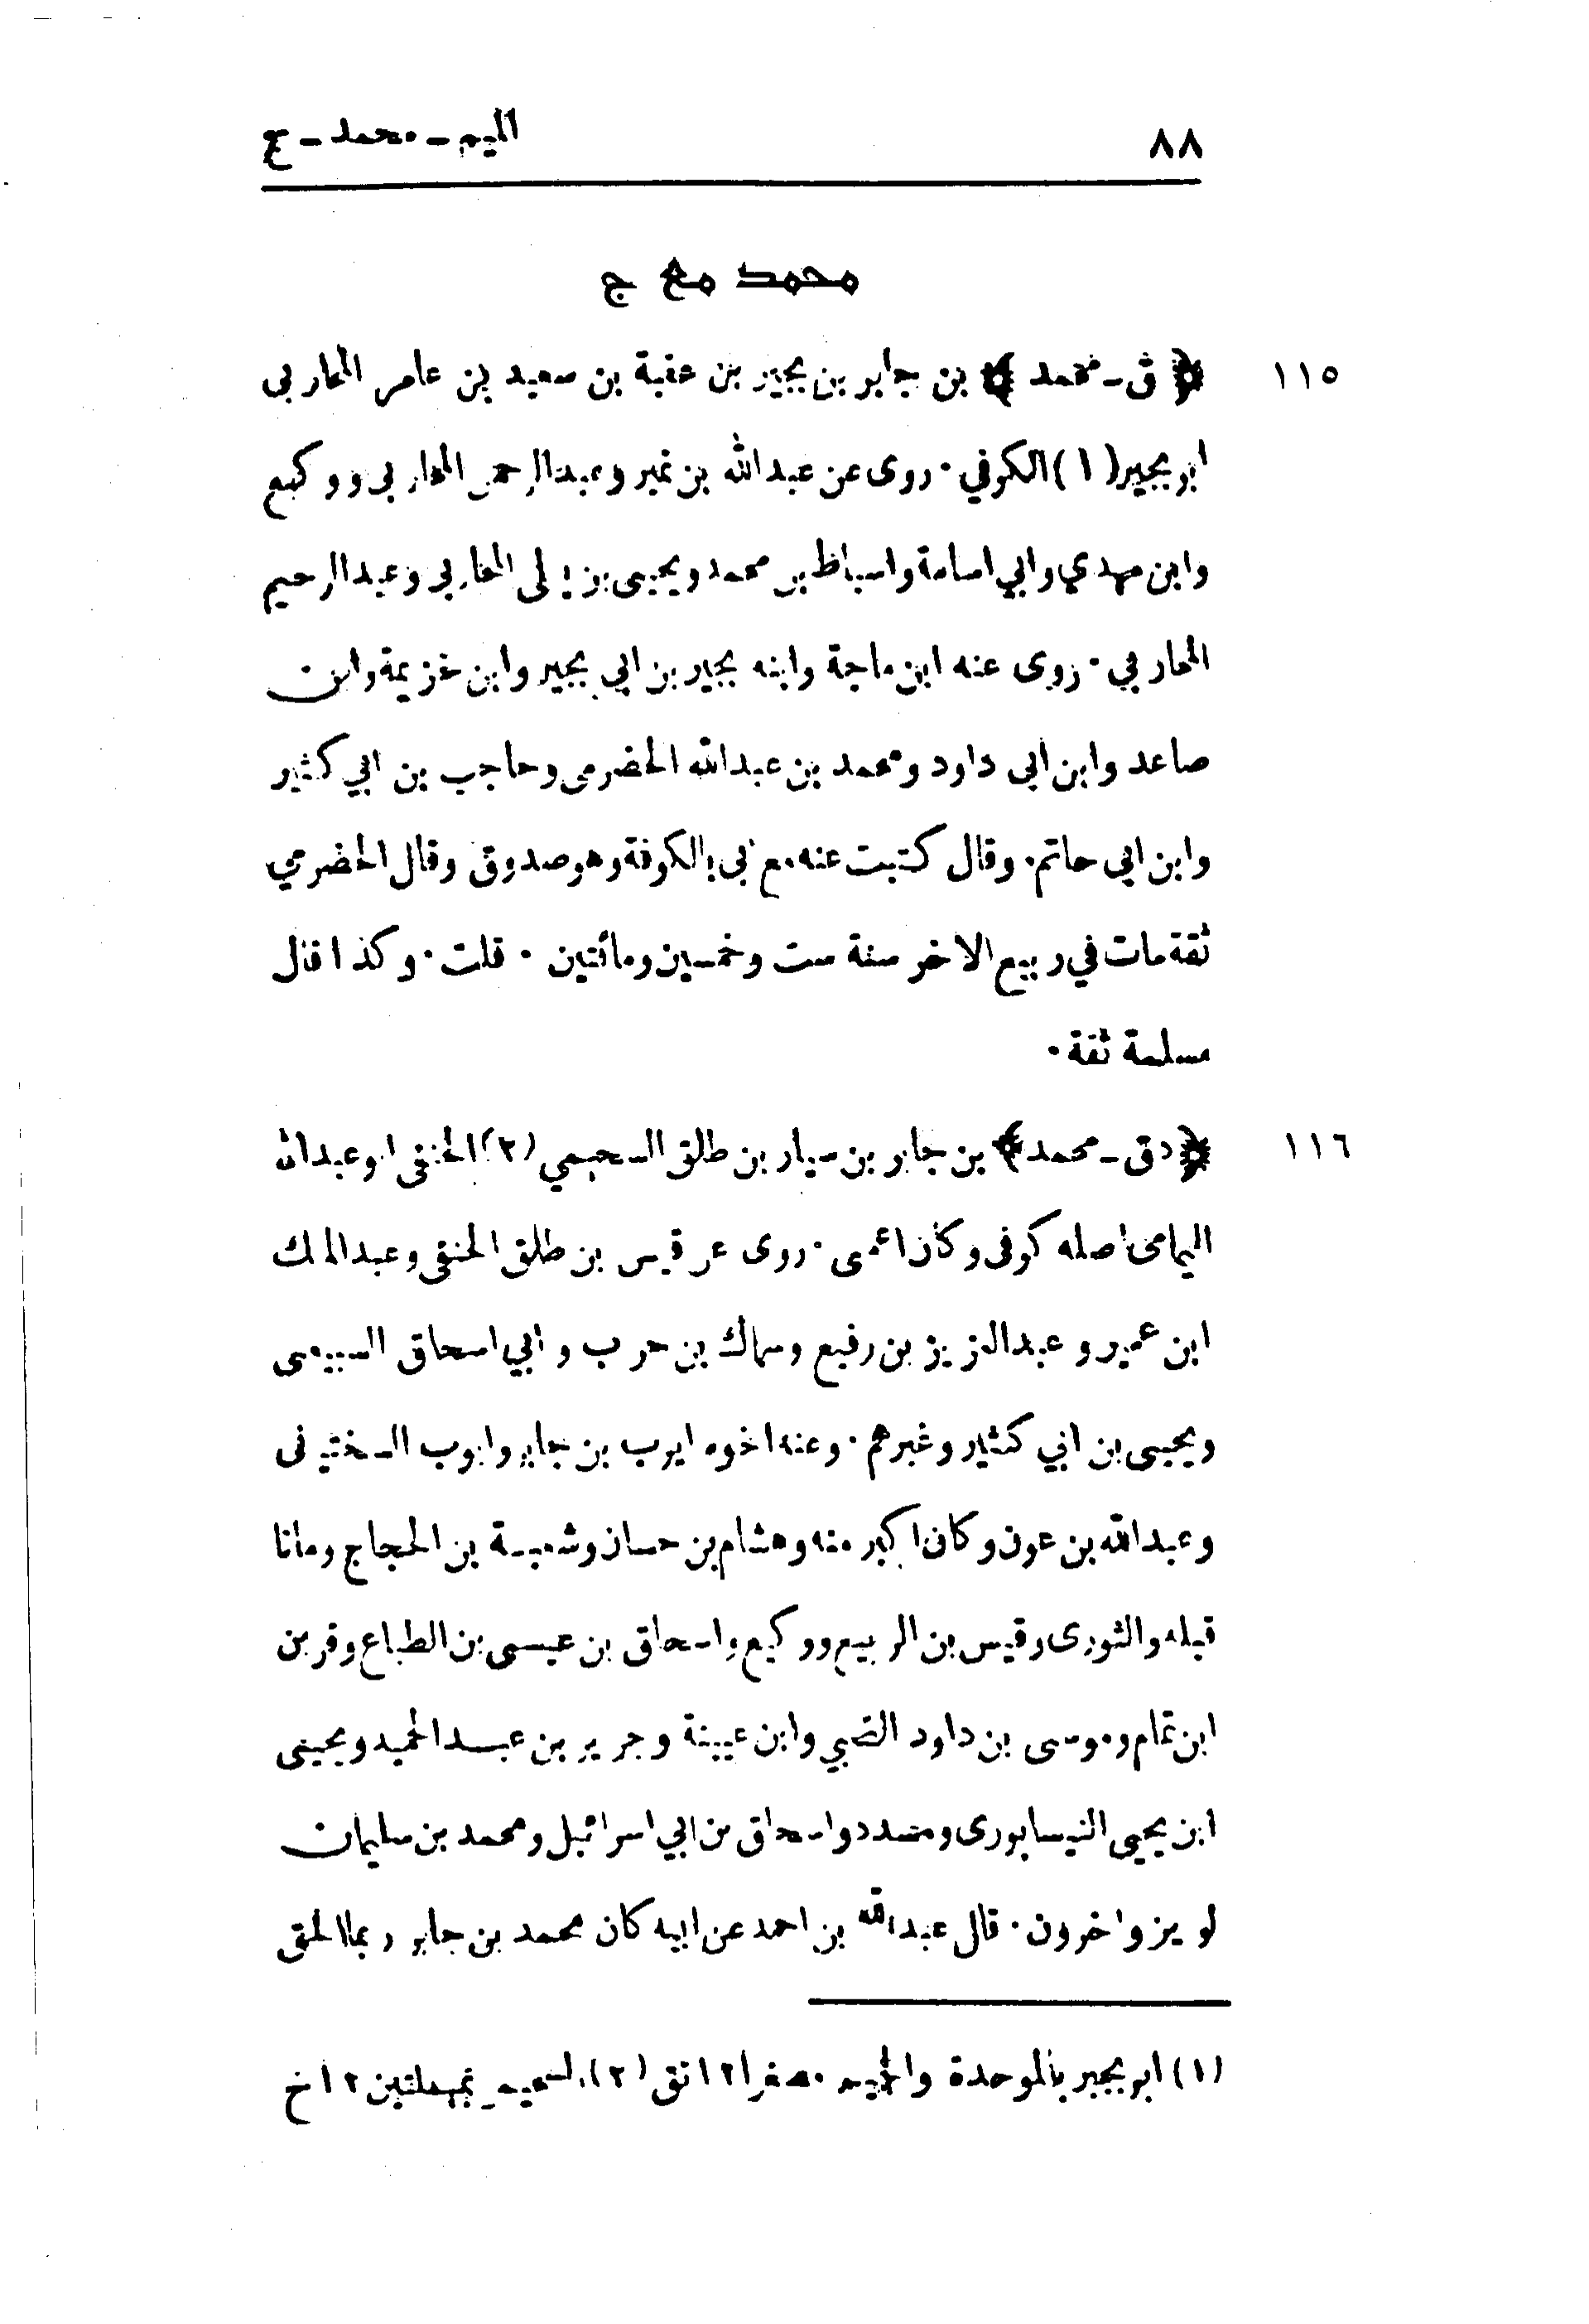 ٨٨
الميم - محمد - ج
محمد مع ج
١١٥
﴿ ق - محمد ﴾ بن جابر بن بجير بن عقبة بن سعيد بن عامر المحاربي
ابو بجير (١) الكوفي ٠ روى عن عبدالله بن نمير وعبدالرحمن المحاربى ووكيع
وابن مهدي وابي اسامة واسباط بن محمد ويحيى بن يعلى المحاربي وعبدالرحيم
المحاربي ٠ روى عنه ابن ماجة وابنه بجير بن ابي بجير وابن خزيمة وابن
صاعد وابن ابى داود ومحمد بن عبدالله الحضرمى وحاجب بن ابي كثير
وابن ابي حاتم ٠ وقال كتبت عنه مع ابى بالكوفة وهو صدوق وقال الحضرمي
ثقة مات في ربيع الاخر سنة ست وخمسين ومائتين ٠ قلت ٠ وكذا قال
مسلمة ثقة ٠
١١٦
﴿ دق - محمد ﴾ بن جابر بن سيار بن طلق السحيمي (٢) الحنفى ابو عبدالله
اليمامى اصله كوفى وكان اعمى ٠ روى عن قيس بن طلق الحنفى وعبدالملك
ابن عمير وعبدالعزيز بن رفيع وسماك بن حرب وابي اسحاق السبيعى
ويحيى بن ابي كثير وغيرهم ٠ وعنه اخوه ايوب بن جابر وايوب السختيانى
وعبدالله بن عون وكان اكبر منه وهشام بن حسان وشعبة بن الحجاج وماتا
قبله والثورى وقيس بن الربيع ووكيع واسحاق بن عيسى بن الطباع وقر بن
ابن تمام وموسى بن داود الضبي وابن عيينة وجرير بن عبدالحميد ويحيى
ابن يحيى النيسابورى ومسدد واسحاق بن ابي اسرائيل ومحمد بن سليمان
لوين واخرون ٠ قال عبدالله بن احمد عن ابيه كان محمد بن جابر ربما الحق
(١) ابو بجير بالموحدة والجيم مصغرا ١٢ تق (٢) السحيمى بمهملتين ١٢ خ